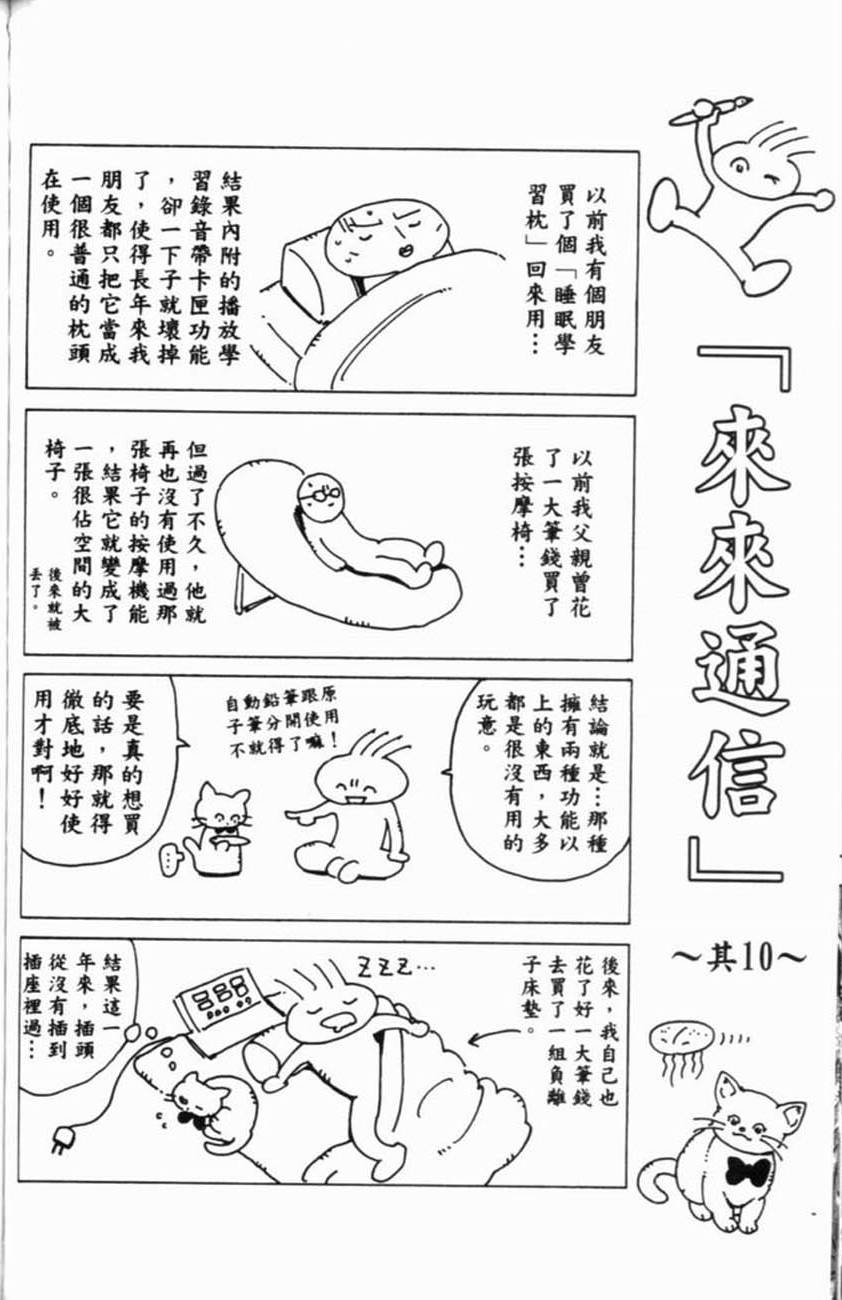 『來來通信』
~其10~
以前我有個朋友
買了個「睡眠學
習枕」回來用…
結果內附的播放學
習錄音帶卡匣功能
，卻一下子就壞掉
了，使得長年來我
朋友都只把它當成
一個很普通的枕頭
在使用。
以前我父親曾花
了一大筆錢買了
張按摩椅…
但過了不久，他就
再也沒有使用過那
張椅子的按摩機能
，結果它就變成了
一張很佔空間的大
椅子。
後來就被
丟了。
結論就是…那種
擁有兩種功能以
上的東西，大多
都是很沒有用的
玩意。
自動鉛筆跟原
子筆分開使用
不就得了嘛！
…
要是真的想買
的話，那就得
徹底地好好使
用才對啊！
後來，我自己也
花了好一大筆錢
去買了一組負離
子床墊。
ZZZ…
結果這一
年來，插頭
從沒有插到
插座裡過…